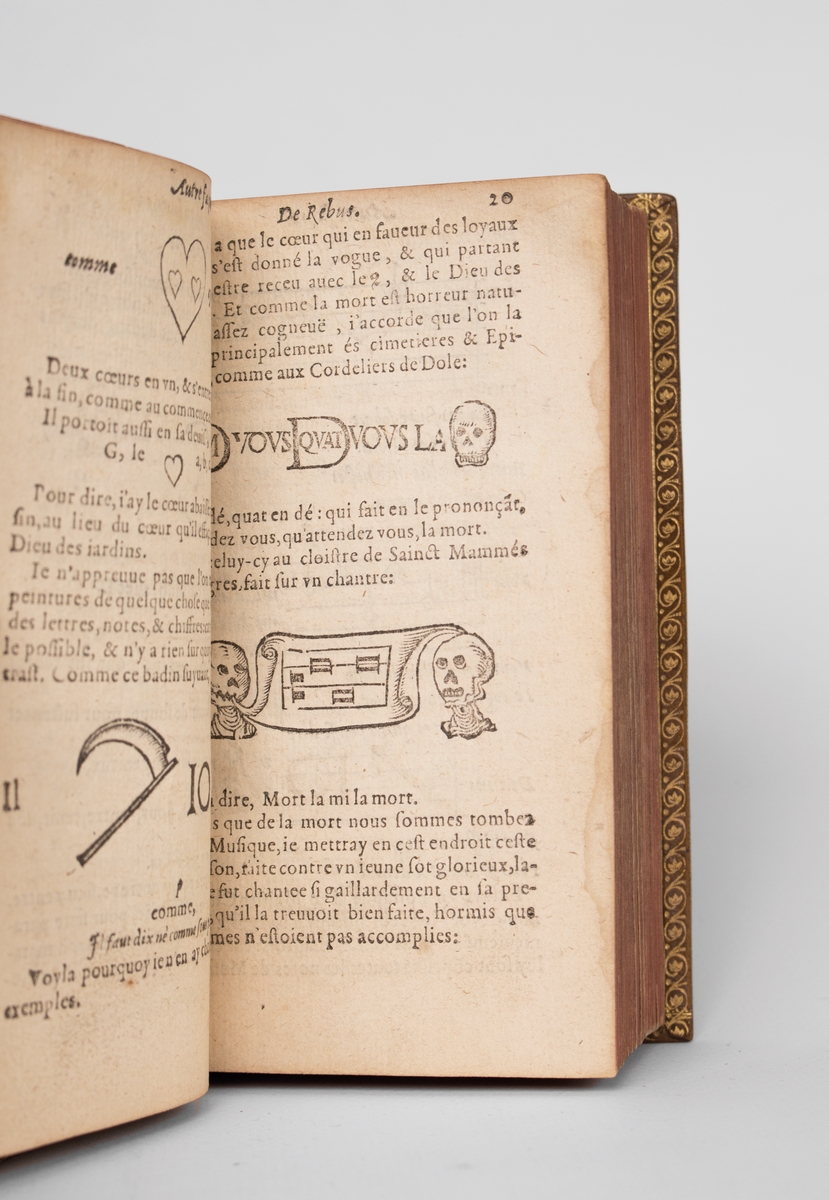 Autre
comme
Deux cœurs en vn, & s'en
à la fin, comme au commence
Il portoit aussi en sa deuise
G, le
a, b
Pour dire, i'ay le cœur abaissé
fin, au lieu du cœur qu'il est
Dieu des iardins.
Ie n'appreuue pas que l'on
peintures de quelque chose que
des lettres, notes, & chiffres
le possible, & n'y a rien sur
traist. Comme ce badin suyuant
Il IO
comme,
Il faut dix né comme
Voyla pourquoy ie n'en ay
exemples.
De Rebus. 20
a que le cœur qui en faueur des loyaux
s'est donné la vogue, & qui partant
estre receu auec le 2, & le Dieu des
. Et comme la mort est horreur natu-
assez cogneuë, i'accorde que l'on la
principalement és cimetieres & Epi-
comme aux Cordeliers de Dole:
D VOVS D QVAT VOVS LA
dé, quat en dé: qui fait en le prononçāt,
dez vous, qu'attendez vous, la mort.
celuy-cy au cloistre de Sainct Mammés
gres, fait sur vn chantre:
dire, Mort la mi la mort.
s que de la mort nous sommes tombez
Musique, ie mettray en cest endroit ceste
son, faite contre vn ieune sot glorieux, la-
e fut chantee si gaillardement en sa pre-
qu'il la treuuoit bien faite, hormis que
mes n'estoient pas accomplies: